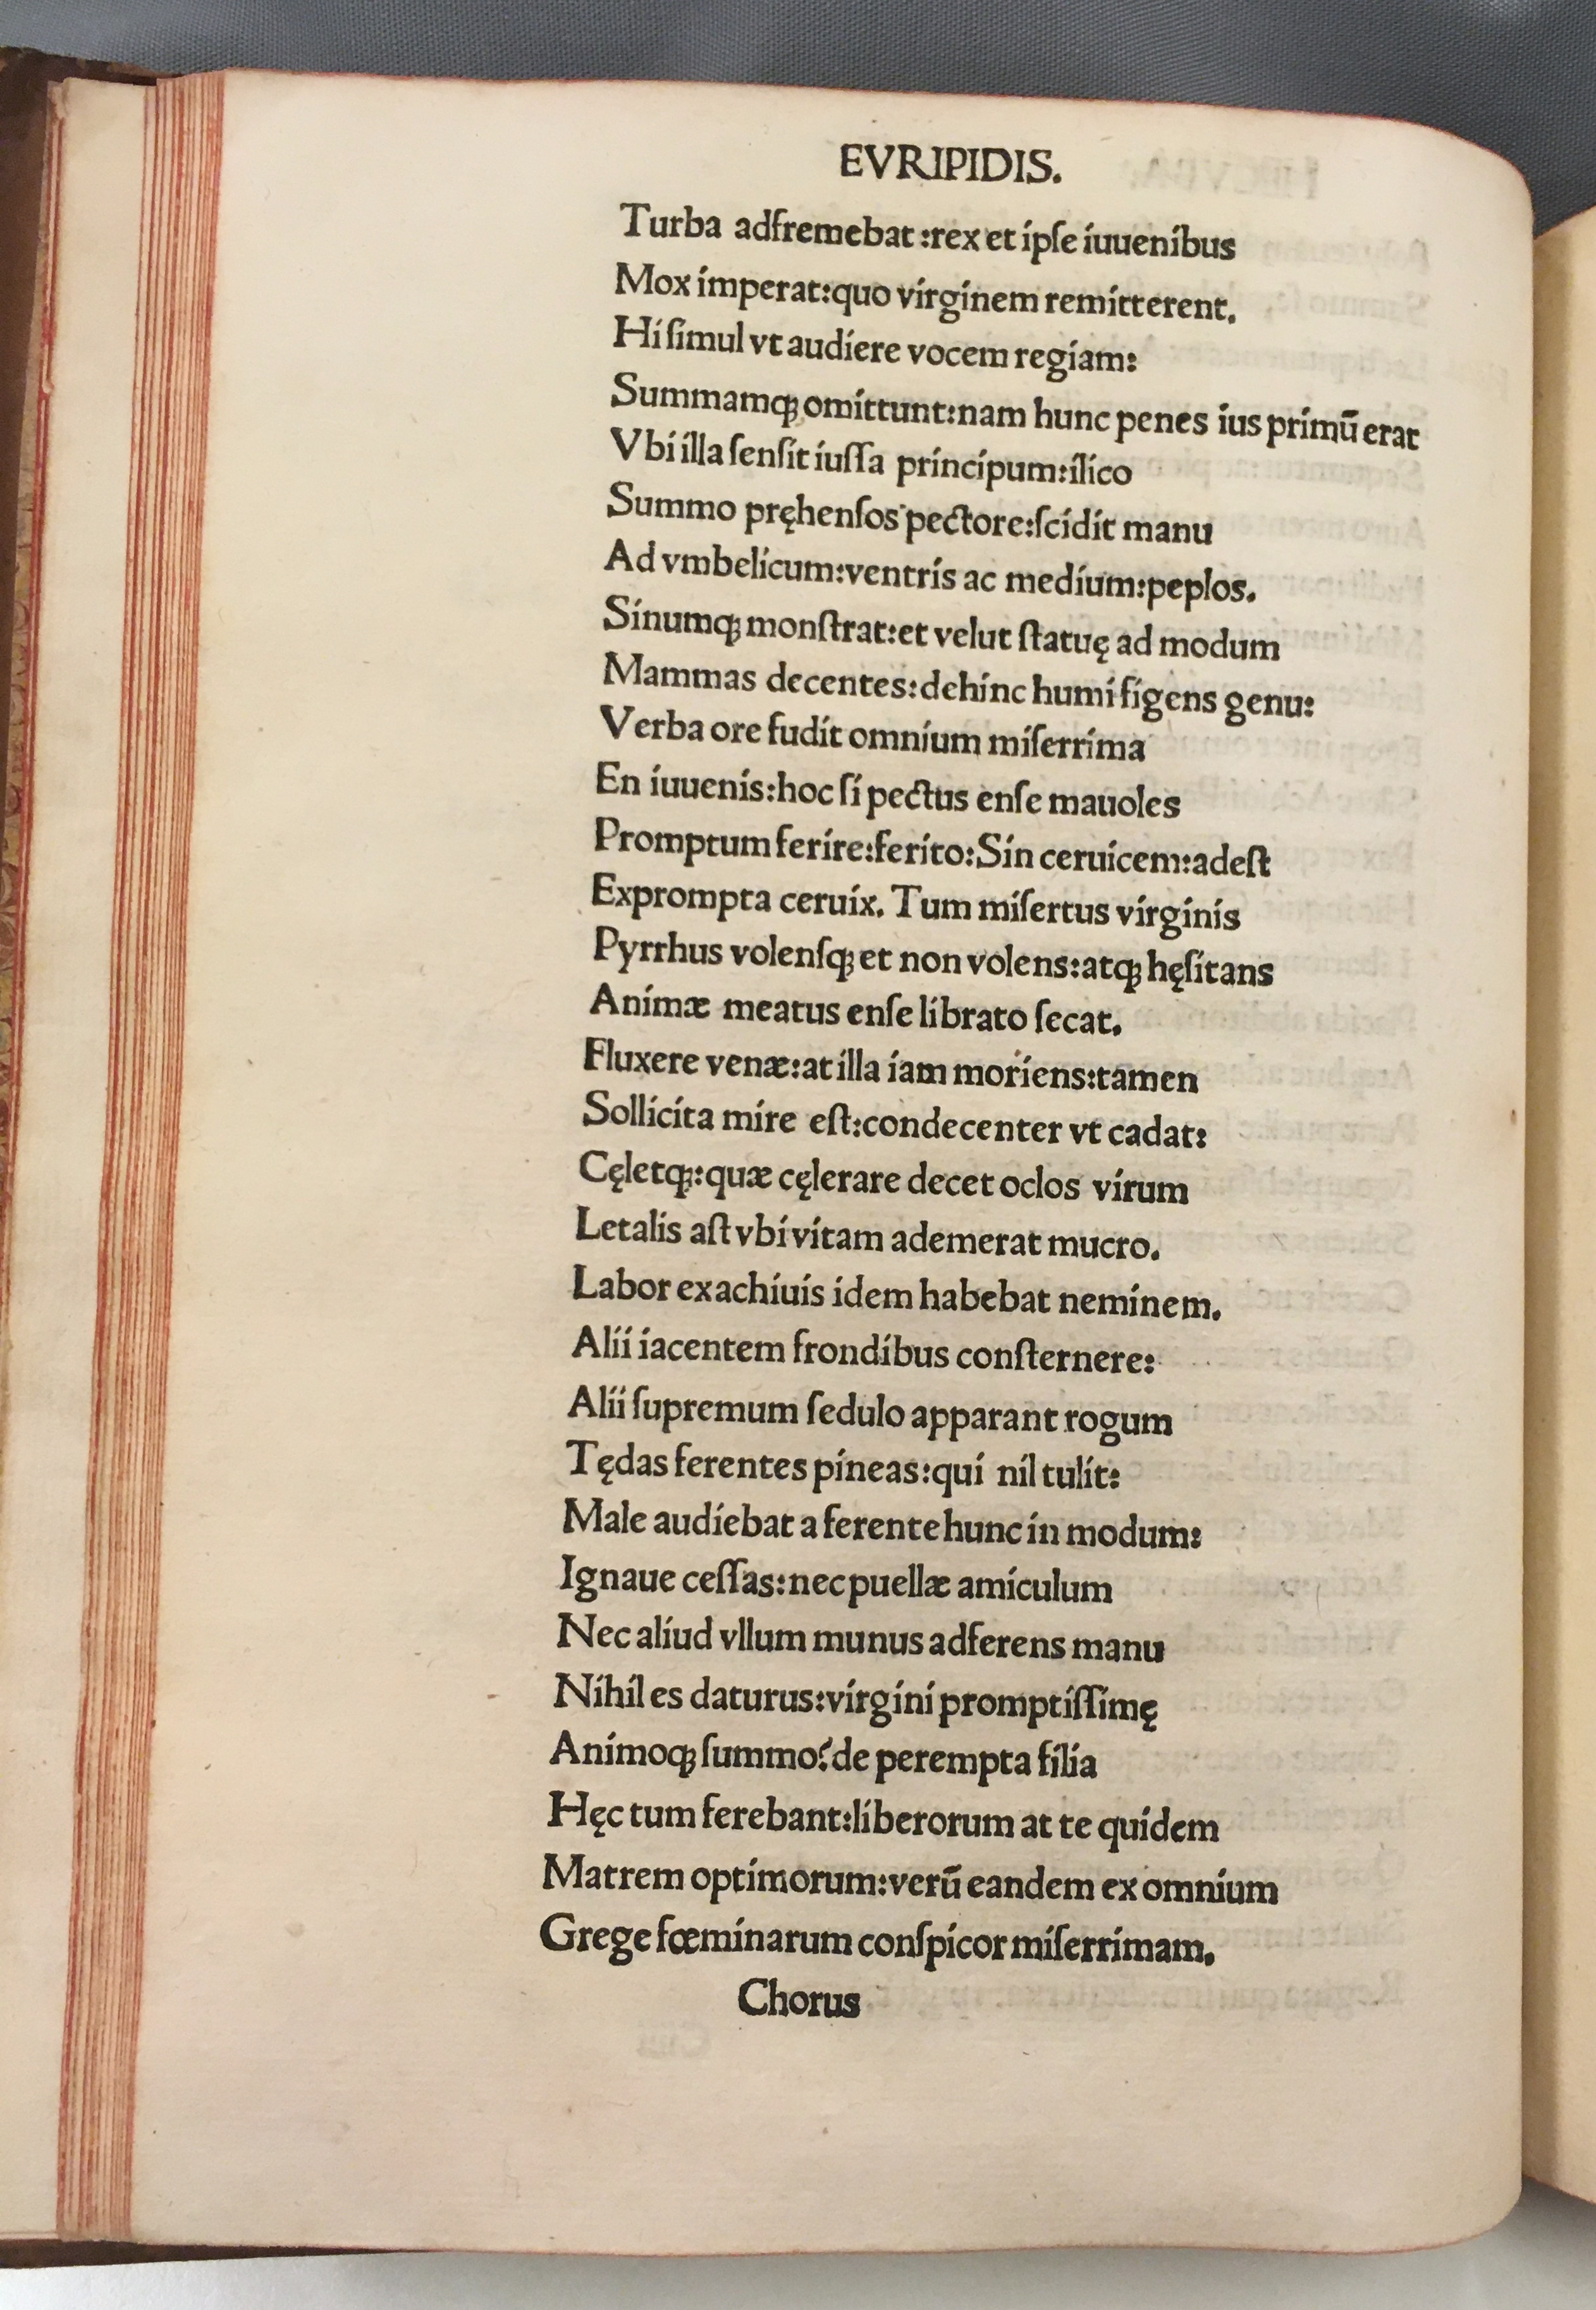 EVRIPIDIS.
Turba adfremebat:rex et ipſe iuuenibus
Mox imperat:quo virginem remitterent.
Hi ſimul vt audiere vocem regiam:
Summamqꝫ omittunt:nam hunc penes ius primū erat
Vbi illa ſenſit iuſſa principum:ilico
Summo pręhenſos pectore:ſcidit manu
Ad vmbelicum:ventris ac medium:peplos.
Sinumqꝫ monſtrat:et velut ſtatuę ad modum
Mammas decentes:dehinc humi figens genu:
Verba ore fudit omnium miſerrima
En iuuenis:hoc ſi pectus enſe mauoles
Promptum ferire:ferito:Sin ceruicem:adeſt
Exprompta ceruix. Tum miſertus virginis
Pyrrhus volenſqꝫ et non volens:atqꝫ hęſitans
Animæ meatus enſe librato ſecat.
Fluxere venæ:at illa iam moriens:tamen
Sollicita mire eſt:condecenter vt cadat:
Cęletqꝫ:quæ cęlerare decet oclos virum
Letalis aſt vbi vitam ademerat mucro.
Labor ex achiuis idem habebat neminem.
Alii iacentem frondibus conſternere:
Alii ſupremum ſedulo apparant rogum
Tędas ferentes pineas:qui nil tulit:
Male audiebat a ferente hunc in modum:
Ignaue ceſſas:nec puellæ amiculum
Nec aliud vllum munus adferens manu
Nihil es daturus:virgini promptiſſimę
Animoqꝫ ſummo?de perempta filia
Hęc tum ferebant:liberorum at te quidem
Matrem optimorum:verū eandem ex omnium
Grege fœminarum conſpicor miſerrimam.
Chorus